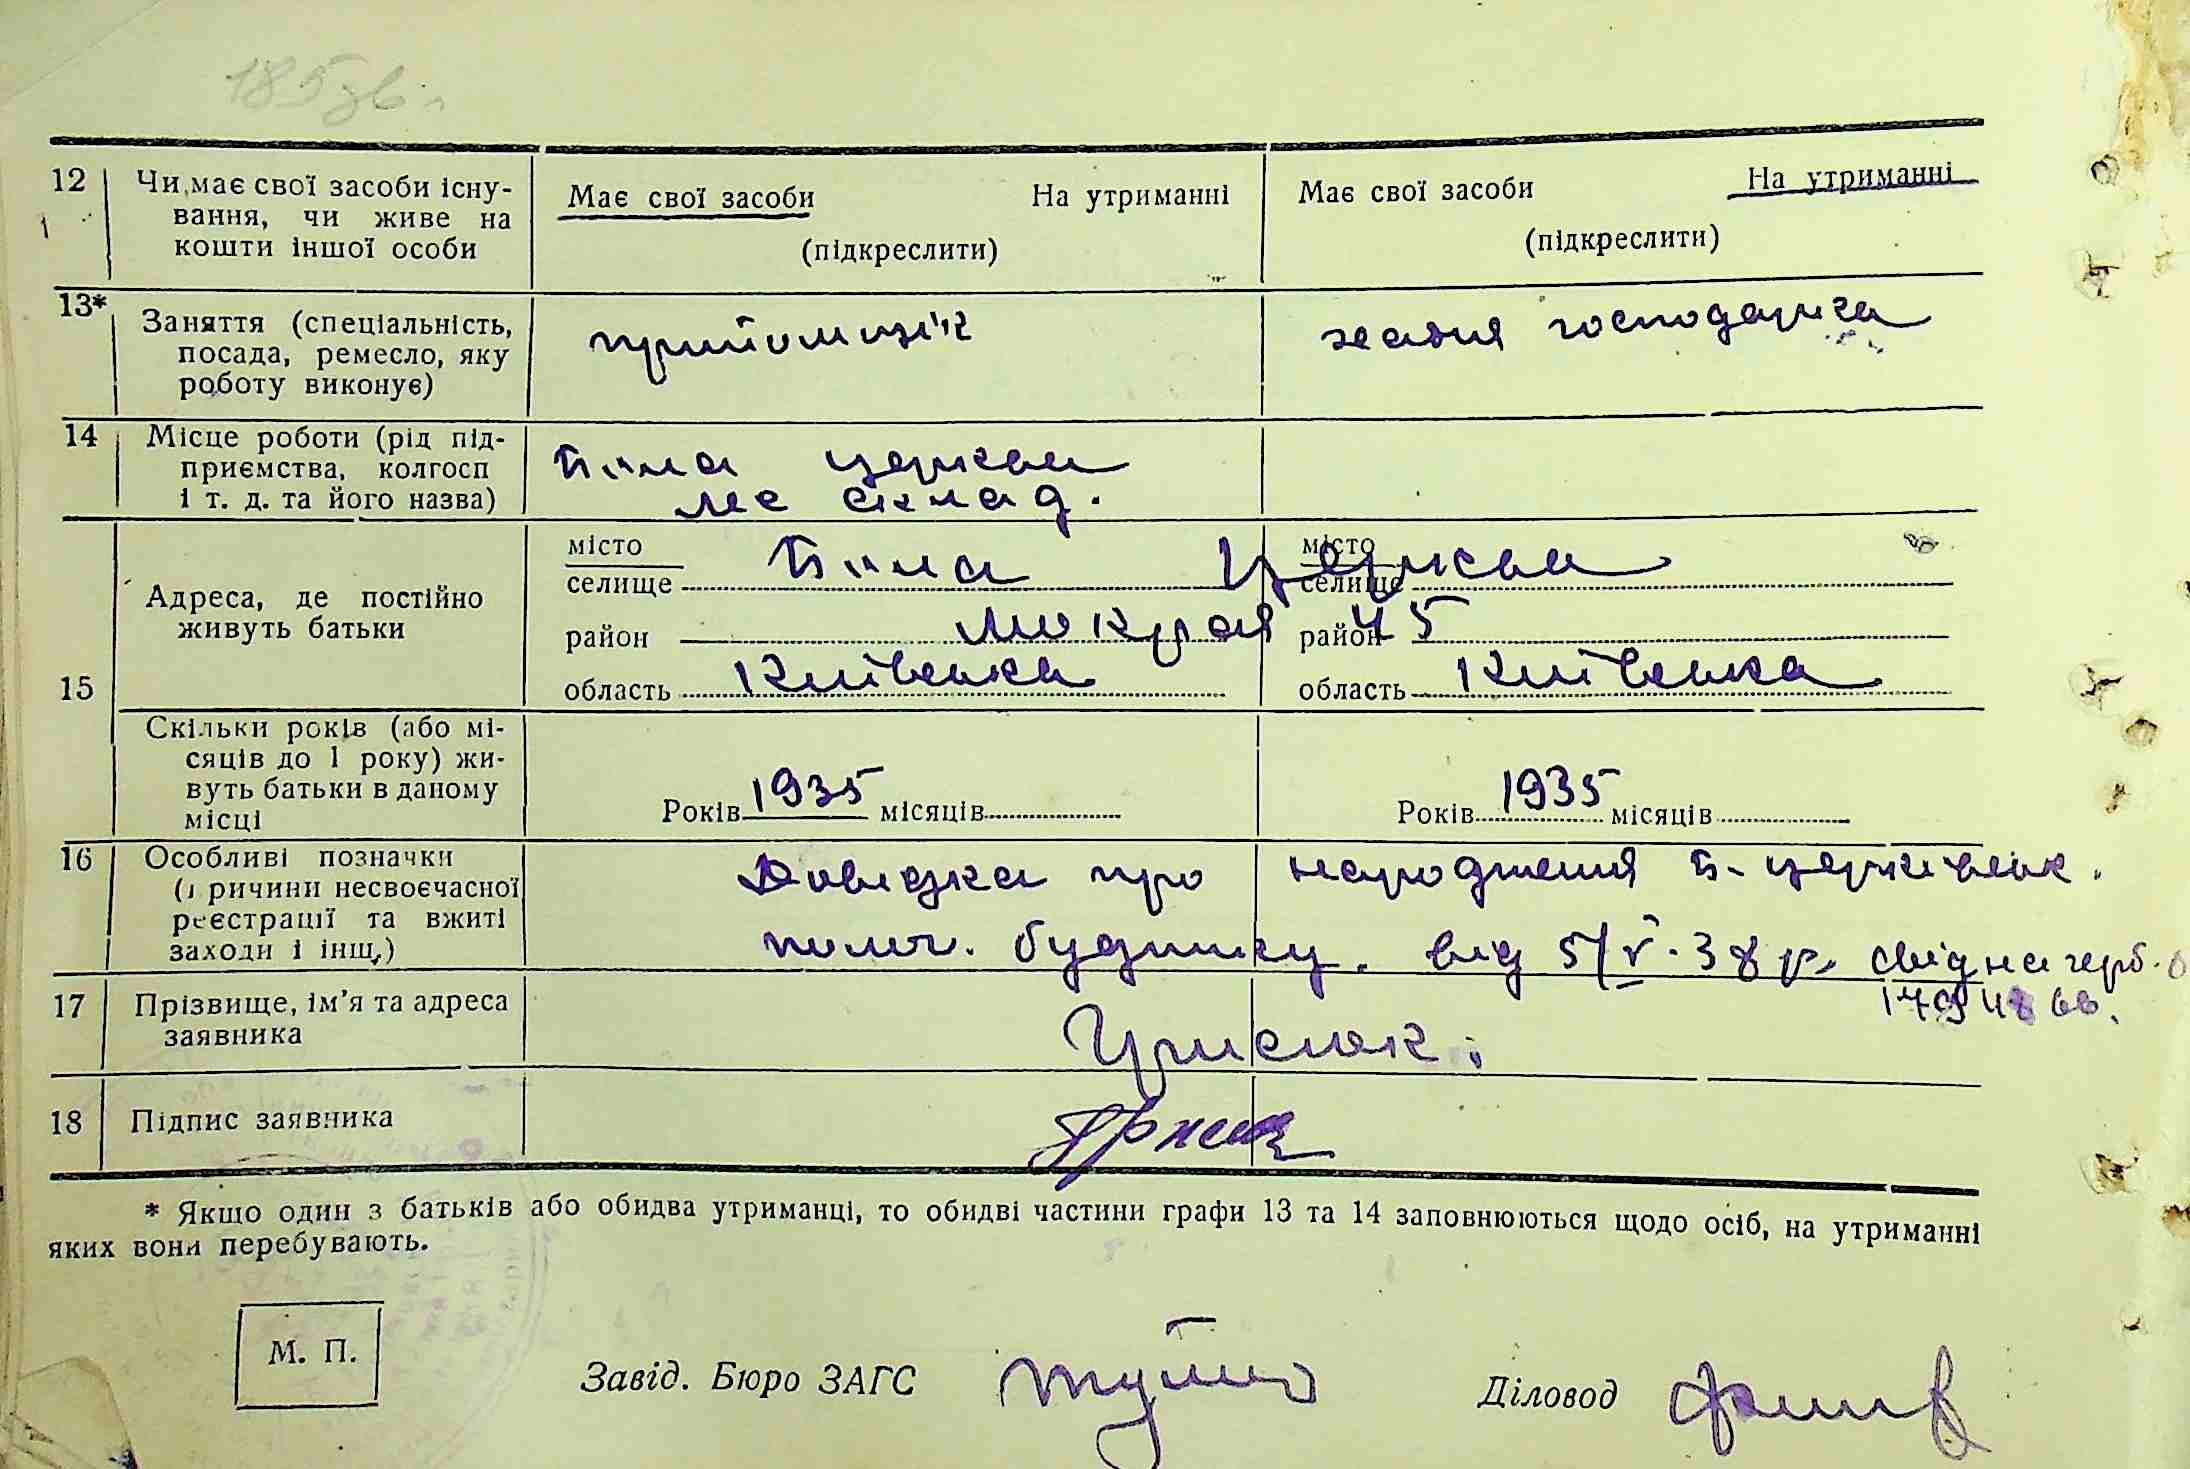 185 зв
12 Чи має свої засоби існу-
вання, чи живе на
кошти іншої особи
Має свої засоби На утриманні
(підкреслити)
Має свої засоби На утриманні
(підкреслити)
13* Заняття (спеціальність,
посада, ремесло, яку
роботу виконує)
прийомщік
хатня господарка
14 Місце роботи (рід під-
приємства, колгосп
і т. д. та його назва)
Біла церква
лес склад.
15
Адреса, де постійно
живуть батьки
місто
селище Біла Церква
район Мокрая 45
область Київська
місто
селище
район
область Київська
Скільки років (або мі-
сяців до 1 року) жи-
вуть батьки в даному
місці
Років 1935 місяців
Років 1935 місяців
16 Особливі позначки
(причини несвоєчасної
реєстрації та вжиті
заходи і інш.)
Довідка про народження Б-церківськ.
полог. будинку. від 5/V-38 р. свід на герб.
17 Прізвище, ім'я та адреса
заявника
18 Підпис заявника
* Якщо один з батьків або обидва утриманці, то обидві частини графи 13 та 14 заповнюються щодо осіб, на утриманні
яких вони перебувають.
М. П.
Завід. Бюро ЗАГС
Діловод